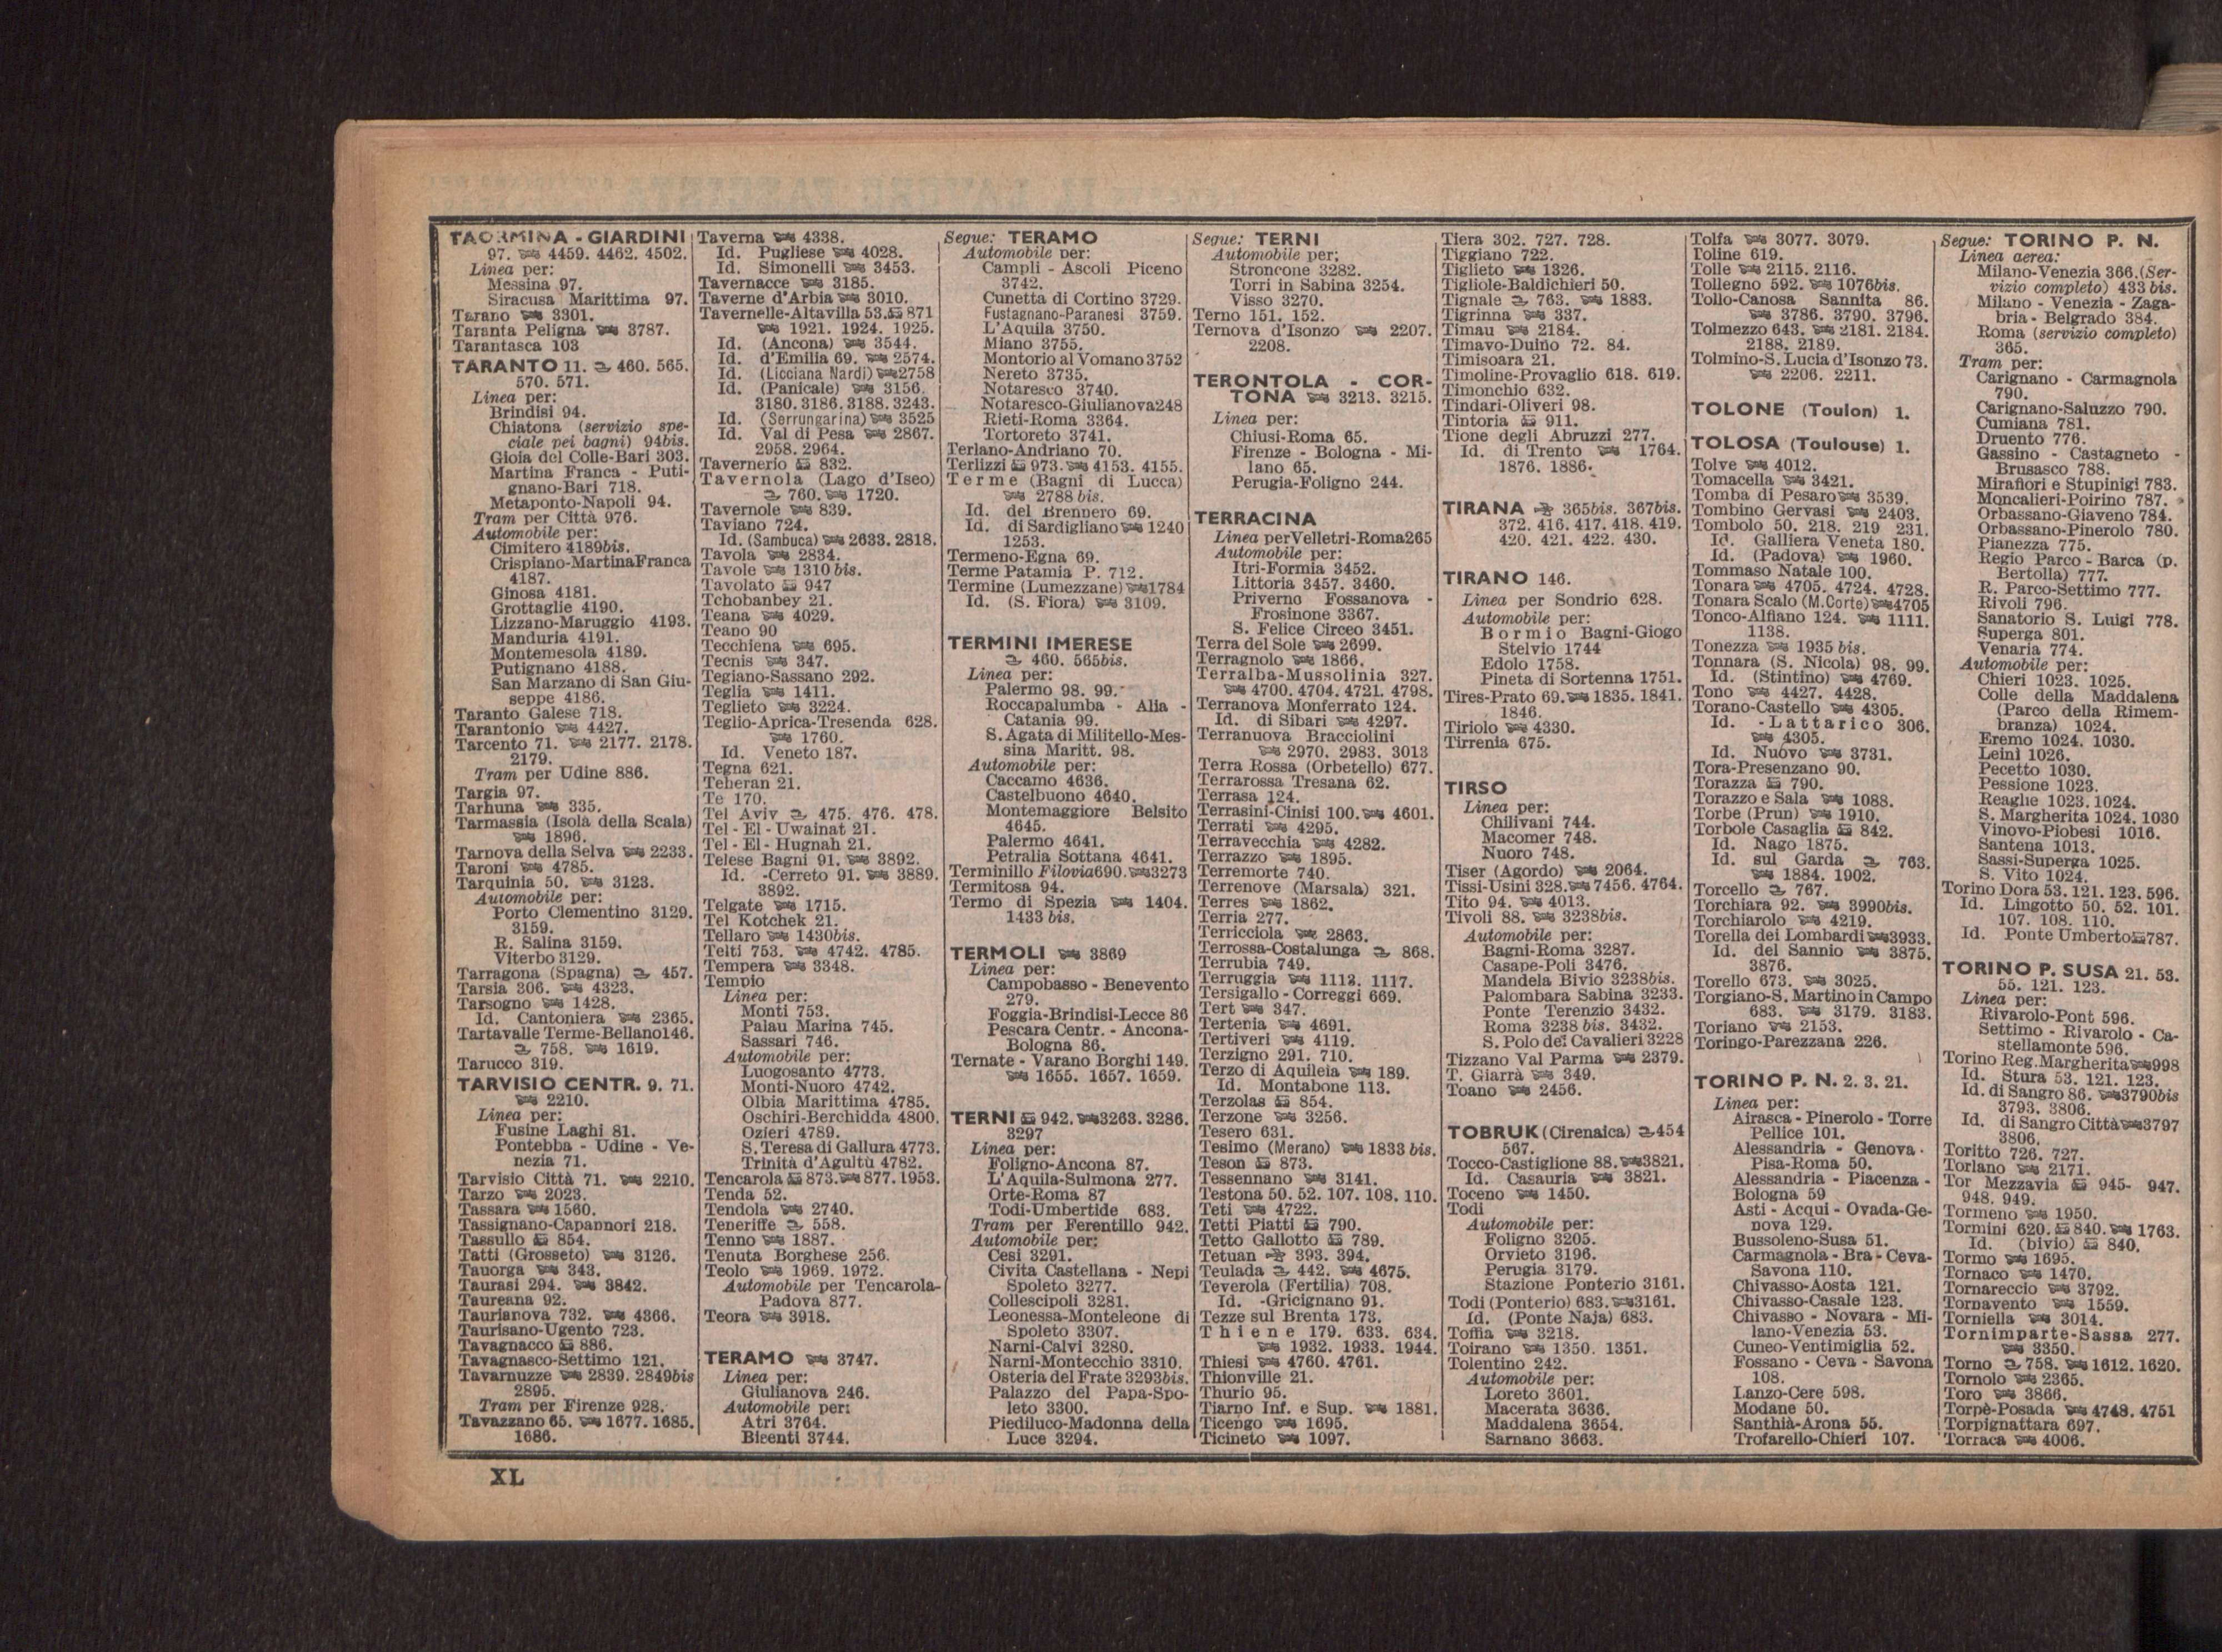 TAORMINA - GIARDINI
97. 4459. 4462. 4502.
Linea per:
Messina 97.
Siracusa Marittima 97.
Tarano 3301.
Taranta Peligna 3787.
Tarantasca 103
TARANTO 11. 460. 565.
570. 571.
Linea per:
Brindisi 94.
Chiatona (servizio spe-
ciale pei bagni) 94bis.
Gioia del Colle-Bari 303.
Martina Franca - Puti-
gnano-Bari 718.
Metaponto-Napoli 94.
Tram per Città 976.
Automobile per:
Cimitero 4189bis.
Crispiano-MartinaFranca
4187.
Ginosa 4181.
Grottaglie 4190.
Lizzano-Maruggio 4193.
Manduria 4191.
Montemesola 4189.
Putignano 4188.
San Marzano di San Giu-
seppe 4186.
Taranto Galese 718.
Tarantonio 4427.
Tarcento 71. 2177. 2178.
2179.
Tram per Udine 886.
Targia 97.
Tarhuna 335.
Tarmassia (Isola della Scala)
1896.
Tarnova della Selva 2233.
Taroni 4785.
Tarquinia 50. 3123.
Automobile per:
Porto Clementino 3129.
3159.
R. Salina 3159.
Viterbo 3129.
Tarragona (Spagna) 457.
Tarsia 306. 4323.
Tarsogno 1428.
Id. Cantoniera 2365.
Tartavalle Terme-Bellano146.
758. 1619.
Tarucco 319.
TARVISIO CENTR. 9. 71.
2210.
Linea per:
Fusine Laghi 81.
Pontebba - Udine - Ve-
nezia 71.
Tarvisio Città 71. 2210.
Tarzo 2023.
Tassara 1560.
Tassignano-Capannori 218.
Tassullo 854.
Tatti (Grosseto) 3126.
Tauorga 343.
Taurasi 294. 3842.
Taureana 92.
Taurianova 732. 4366.
Taurisano-Ugento 723.
Tavagnacco 886.
Tavagnasco-Settimo 121.
Tavarnuzze 2839. 2849bis
2895.
Tram per Firenze 928.
Tavazzano 65. 1677. 1685.
1686.
Taverna 4338.
Id. Pugliese 4028.
Id. Simonelli 3453.
Tavernacce 3185.
Taverne d'Arbia 3010.
Tavernelle-Altavilla 53. 871
1921. 1924. 1925.
Id. (Ancona) 3544.
Id. d'Emilia 69. 2574.
Id. (Licciana Nardi) 2758
Id. (Panicale) 3156.
3180. 3186. 3188. 3243.
Id. (Serrungarina) 3525
Id. Val di Pesa 2867.
2958. 2964.
Tavernerio 832.
Tavernola (Lago d'Iseo)
760. 1720.
Tavernole 839.
Taviano 724.
Id. (Sambuca) 2633. 2818.
Tavola 2834.
Tavole 1310 bis.
Tavolato 947
Tchobanbey 21.
Teana 4029.
Teano 90
Tecchiena 695.
Tecnis 347.
Tegiano-Sassano 292.
Teglia 1411.
Teglieto 3224.
Teglio-Aprica-Tresenda 628.
1760.
Id. Veneto 187.
Tegna 621.
Teheran 21.
Te 170.
Tel Aviv 475. 476. 478.
Tel - El - Uwainat 21.
Tel - El - Hugnah 21.
Telese Bagni 91. 3892.
Id. -Cerreto 91. 3889.
3892.
Telgate 1715.
Tel Kotchek 21.
Tellaro 1430bis.
Telti 753. 4742. 4785.
Tempera 3348.
Tempio
Linea per:
Monti 753.
Palau Marina 745.
Sassari 746.
Automobile per:
Luogosanto 4773.
Monti-Nuoro 4742.
Olbia Marittima 4785.
Oschiri-Berchidda 4800.
Ozieri 4789.
S. Teresa di Gallura 4773.
Trinità d'Agultù 4782.
Tencarola 873. 877. 1953.
Tenda 52.
Tendola 2740.
Teneriffe 558.
Tenno 1887.
Tenuta Borghese 256.
Teolo 1969. 1972.
Automobile per Tencarola-
Padova 877.
Teora 3918.
TERAMO 3747.
Linea per:
Giulianova 246.
Automobile per:
Atri 3764.
Bisenti 3744.
Segue: TERAMO
Automobile per:
Campli - Ascoli Piceno
3742.
Cunetta di Cortino 3729.
Fustagnano-Paranesi 3759.
L'Aquila 3750.
Miano 3755.
Montorio al Vomano 3752
Nereto 3735.
Notaresco 3740.
Notaresco-Giulianova248
Rieti-Roma 3364.
Tortoreto 3741.
Terlano-Andriano 70.
Terlizzi 973. 4153. 4155.
Terme (Bagni di Lucca)
2788 bis.
Id. del Brennero 69.
Id. di Sardigliano 1240
1253.
Termeno-Egna 69.
Terme Patamia P. 712.
Termine (Lumezzane) 1784
Id. (S. Fiora) 3109.
TERMINI IMERESE
460. 565bis.
Linea per:
Palermo 98. 99.
Roccapalumba - Alia -
Catania 99.
S. Agata di Militello-Mes-
sina Maritt. 98.
Automobile per:
Caccamo 4636.
Castelbuono 4640.
Montemaggiore Belsito
4645.
Palermo 4641.
Petralia Sottana 4641.
Terminillo Filovia690. 3273
Termitosa 94.
Termo di Spezia 1404.
1433 bis.
TERMOLI 3869
Linea per:
Campobasso - Benevento
279.
Foggia-Brindisi-Lecce 86
Pescara Centr. - Ancona-
Bologna 86.
Ternate - Varano Borghi 149.
1655. 1657. 1659.
TERNI 942. 3263. 3286.
3297
Linea per:
Foligno-Ancona 87.
L'Aquila-Sulmona 277.
Orte-Roma 87
Todi-Umbertide 683.
Tram per Ferentillo 942.
Automobile per:
Cesi 3291.
Civita Castellana - Nepi
Spoleto 3277.
Collescipoli 3281.
Leonessa-Monteleone di
Spoleto 3307.
Narni-Calvi 3280.
Narni-Montecchio 3310.
Osteria del Frate 3293bis.
Palazzo del Papa-Spo-
leto 3300.
Piediluco-Madonna della
Luce 3294.
Segue: TERNI
Automobile per;
Stroncone 3282.
Torri in Sabina 3254.
Visso 3270.
Terno 151. 152.
Ternova d'Isonzo 2207.
2208.
TERONTOLA - COR-
TONA 3213. 3215.
Linea per:
Chiusi-Roma 65.
Firenze - Bologna - Mi-
lano 65.
Perugia-Foligno 244.
TERRACINA
Linea perVelletri-Roma265
Automobile per:
Itri-Formia 3452.
Littoria 3457. 3460.
Priverno Fossanova -
Frosinone 3367.
S. Felice Circeo 3451.
Terra del Sole 2699.
Terragnolo 1866.
Terralba-Mussolinia 327.
4700. 4704. 4721. 4798.
Terranova Monferrato 124.
Id. di Sibari 4297.
Terranuova Bracciolini
2970. 2983. 3013
Terra Rossa (Orbetello) 677.
Terrarossa Tresana 62.
Terrasa 124.
Terrasini-Cinisi 100. 4601.
Terrati 4295.
Terravecchia 4282.
Terrazzo 1895.
Terremorte 740.
Terrenove (Marsala) 321.
Terres 1862.
Terria 277.
Terricciola 2863.
Terrossa-Costalunga 868.
Terrubia 749.
Terruggia 1112. 1117.
Tersigallo - Correggi 669.
Tert 347.
Tertenia 4691.
Tertiveri 4119.
Terzigno 291. 710.
Terzo di Aquileia 189.
Id. Montabone 113.
Terzolas 854.
Terzone 3256.
Tesero 631.
Tesimo (Merano) 1833 bis.
Teson 873.
Tessennano 3141.
Testona 50. 52. 107. 108. 110.
Teti 4722.
Tetti Piatti 790.
Tetto Gallotto 789.
Tetuan 393. 394.
Teulada 442. 4675.
Teverola (Fertilia) 708.
Id. -Gricignano 91.
Tezze sul Brenta 173.
Thiene 179. 633. 634.
1932. 1933. 1944.
Thiesi 4760. 4761.
Thionville 21.
Thurio 95.
Tiarno Inf. e Sup. 1881.
Ticengo 1695.
Ticineto 1097.
Tiera 302. 727. 728.
Tiggiano 722.
Tiglieto 1326.
Tigliole-Baldichieri 50.
Tignale 763. 1883.
Tigrinna 337.
Timau 2184.
Timavo-Duino 72. 84.
Timisoara 21.
Timoline-Provaglio 618. 619.
Timonchio 632.
Tindari-Oliveri 98.
Tintoria 911.
Tione degli Abruzzi 277.
Id. di Trento 1764.
1876. 1886.
TIRANA 365bis. 367bis.
372. 416. 417. 418. 419.
420. 421. 422. 430.
TIRANO 146.
Linea per Sondrio 628.
Automobile per:
Bormio Bagni-Giogo
Stelvio 1744
Edolo 1758.
Pineta di Sortenna 1751.
Tires-Prato 69. 1835. 1841.
1846.
Tiriolo 4330.
Tirrenia 675.
TIRSO
Linea per:
Chilivani 744.
Macomer 748.
Nuoro 748.
Tiser (Agordo) 2064.
Tissi-Usini 328. 7456. 4764.
Tito 94. 4013.
Tivoli 88. 3238bis.
Automobile per:
Bagni-Roma 3287.
Casape-Poli 3476.
Mandela Bivio 3238bis.
Palombara Sabina 3233.
Ponte Terenzio 3432.
Roma 3238 bis. 3432.
S. Polo dei Cavalieri 3228
Tizzano Val Parma 2379.
T. Giarrà 349.
Toano 2456.
TOBRUK (Cirenaica) 454
567.
Tocco-Castiglione 88. 3821.
Id. Casauria 3821.
Toceno 1450.
Todi
Automobile per:
Foligno 3205.
Orvieto 3196.
Perugia 3179.
Stazione Ponterio 3161.
Todi (Ponterio) 683. 3161.
Id. (Ponte Naja) 683.
Toffia 3218.
Toirano 1350. 1351.
Tolentino 242.
Automobile per:
Loreto 3601.
Macerata 3636.
Maddalena 3654.
Sarnano 3663.
Tolfa 3077. 3079.
Toline 619.
Tolle 2115. 2116.
Tollegno 592. 1076bis.
Tollo-Canosa Sannita 86.
3786. 3790. 3796.
Tolmezzo 643. 2181. 2184.
2188. 2189.
Tolmino-S. Lucia d'Isonzo 73.
2206. 2211.
TOLONE (Toulon) 1.
TOLOSA (Toulouse) 1.
Tolve 4012.
Tomacella 3421.
Tomba di Pesaro 3539.
Tombino Gervasi 2403.
Tombolo 50. 218. 219 231.
Id. Galliera Veneta 180.
Id. (Padova) 1960.
Tommaso Natale 100.
Tonara 4705. 4724. 4728.
Tonara Scalo (M. Corte) 4705
Tonco-Alfiano 124. 1111.
1138.
Tonezza 1935 bis.
Tonnara (S. Nicola) 98. 99.
Id. (Stintino) 4769.
Tono 4427. 4428.
Torano-Castello 4305.
Id. -Lattarico 306.
4305.
Id. Nuovo 3731.
Tora-Presenzano 90.
Torazza 790.
Torazzo e Sala 1088.
Torbe (Prun) 1910.
Torbole Casaglia 842.
Id. Nago 1875.
Id. sul Garda 763.
1884. 1902.
Torcello 767.
Torchiara 92. 3990bis.
Torchiarolo 4219.
Torella dei Lombardi 3933.
Id. del Sannio 3875.
3876.
Torello 673. 3025.
Torgiano-S. Martino in Campo
683. 3179. 3183.
Toriano 2153.
Toringo-Parezzana 226.
TORINO P. N. 2. 3. 21.
Linea per:
Airasca - Pinerolo - Torre
Pellice 101.
Alessandria - Genova -
Pisa-Roma 50.
Alessandria - Piacenza -
Bologna 59
Asti - Acqui - Ovada-Ge-
nova 129.
Bussoleno-Susa 51.
Carmagnola - Bra - Ceva-
Savona 110.
Chivasso-Aosta 121.
Chivasso-Casale 123.
Chivasso - Novara - Mi-
lano-Venezia 53.
Cuneo-Ventimiglia 52.
Fossano - Ceva - Savona
108.
Lanzo-Cere 598.
Modane 50.
Santhià-Arona 55.
Trofarello-Chieri 107.
Segue: TORINO P. N.
Linea aerea:
Milano-Venezia 366.(Ser-
vizio completo) 433 bis.
Milano - Venezia - Zaga-
bria - Belgrado 384.
Roma (servizio completo)
365.
Tram per:
Carignano - Carmagnola
790.
Carignano-Saluzzo 790.
Cumiana 781.
Druento 776.
Gassino - Castagneto -
Brusasco 788.
Mirafiori e Stupinigi 783.
Moncalieri-Poirino 787.
Orbassano-Giaveno 784.
Orbassano-Pinerolo 780.
Pianezza 775.
Regio Parco - Barca (p.
Bertolla) 777.
R. Parco-Settimo 777.
Rivoli 796.
Sanatorio S. Luigi 778.
Superga 801.
Venaria 774.
Automobile per:
Chieri 1023. 1025.
Colle della Maddalena
(Parco della Rimem-
branza) 1024.
Eremo 1024. 1030.
Leinì 1026.
Pecetto 1030.
Pessione 1023.
Reaglie 1023. 1024.
S. Margherita 1024. 1030
Vinovo-Piobesi 1016.
Santena 1013.
Sassi-Superga 1025.
S. Vito 1024.
Torino Dora 53. 121. 123. 596.
Id. Lingotto 50. 52. 101.
107. 108. 110.
Id. Ponte Umberto 787.
TORINO P. SUSA 21. 53.
55. 121. 123.
Linea per:
Rivarolo-Pont 596.
Settimo - Rivarolo - Ca-
stellamonte 596.
Torino Reg.Margherita 998
Id. Stura 53. 121. 123.
Id. di Sangro 86. 3790bis
3793. 3806.
Id. di Sangro Città 3797
3806.
Toritto 726. 727.
Torlano 2171.
Tor Mezzavia 945- 947.
948. 949.
Tormeno 1950.
Tormini 620. 840. 1763.
Id. (bivio) 840.
Tormo 1695.
Tornaco 1470.
Tornareccio 3792.
Tornavento 1559.
Torniella 3014.
Tornimparte-Sassa 277.
3350.
Torno 758. 1612. 1620.
Tornolo 2365.
Toro 3866.
Torpè-Posada 4748. 4751
Torpignattara 697.
Torraca 4006.
XL